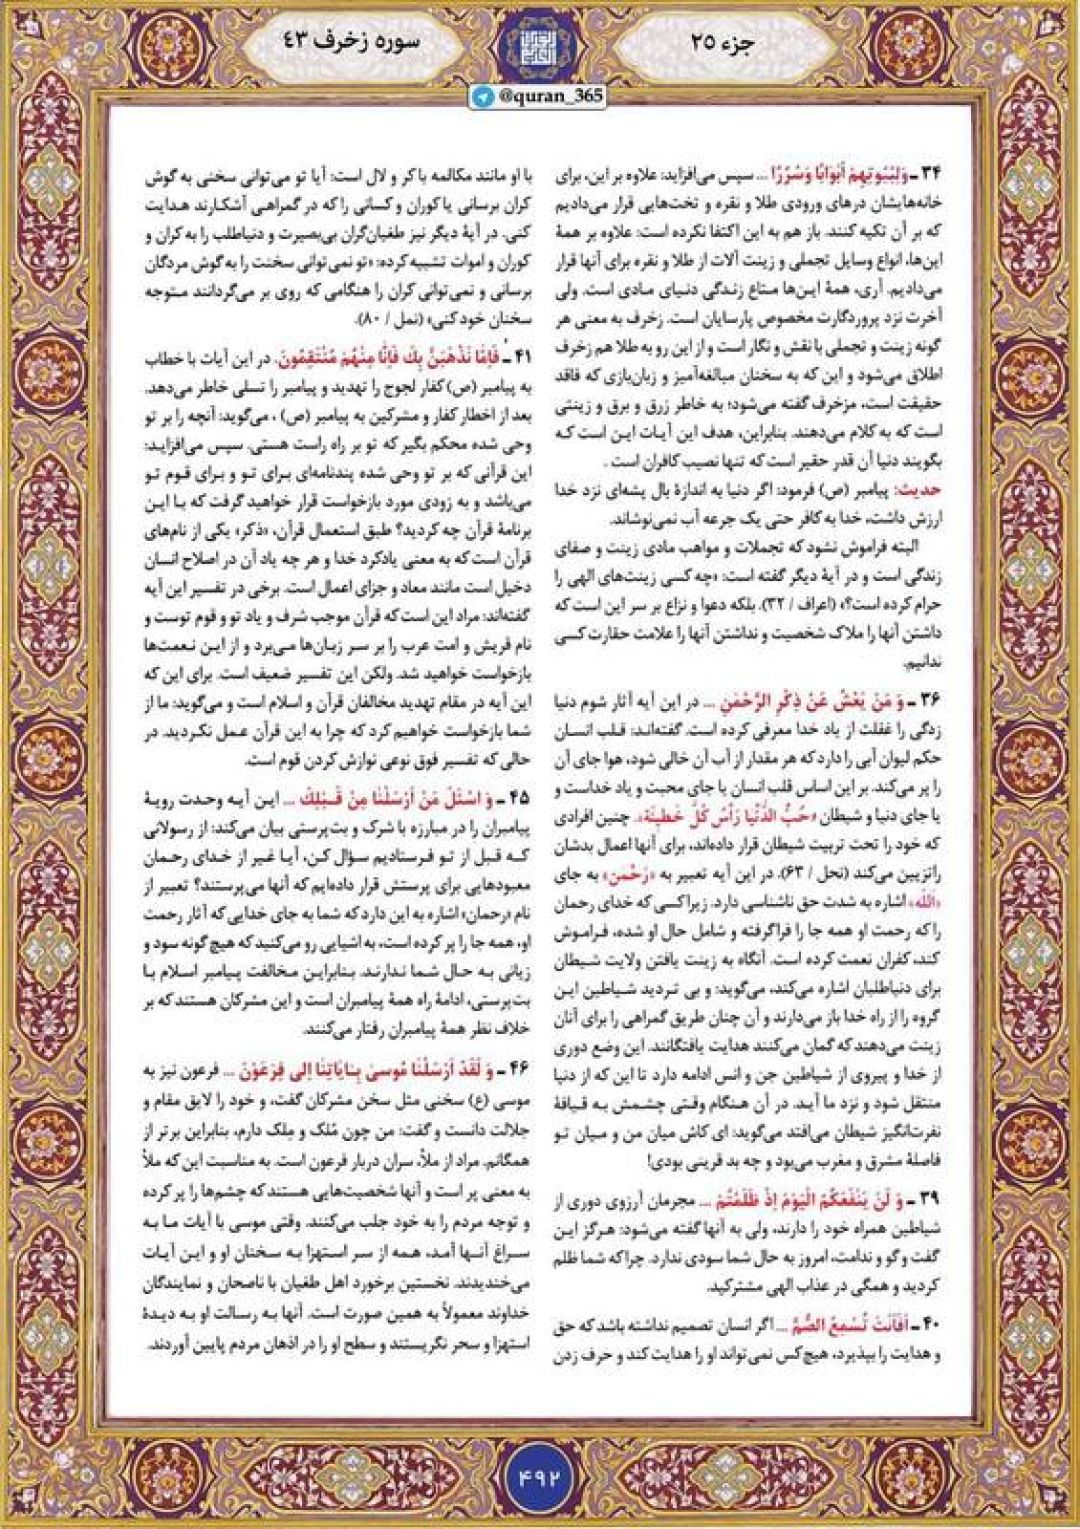 جزء ۲۵
سوره زخرف ۴۳
@quran_365
۳۴ ـ وَلِبُیُوتِهِمْ أَبْوَابًا وَسُرُرًا ... سپس می‌افزاید: علاوه بر این، برای
خانه‌هایشان درهای ورودی طلا و نقره و تخت‌هایی قرار می‌دادیم
که بر آن تکیه کنند. باز هم به این اکتفا نکرده است: علاوه بر همهٔ
این‌ها، انواع وسایل تجملی و زینت آلات از طلا و نقره برای آنها قرار
می‌دادیم. آری، همهٔ این‌ها متاع زندگی دنیای مادی است. ولی
آخرت نزد پروردگارت مخصوص پارسایان است. زخرف به معنی هر
گونه زینت و تجملی با نقش و نگار است و از این رو به طلا هم زخرف
اطلاق می‌شود و این که به سخنان مبالغه‌آمیز و زبان‌بازی که فاقد
حقیقت است، مزخرف گفته می‌شود؛ به خاطر زرق و برق و زینتی
است که به کلام می‌دهند. بنابراین، هدف این آیات این است که
بگویند دنیا آن قدر حقیر است که تنها نصیب کافران است .
حدیث: پیامبر (ص) فرمود: اگر دنیا به اندازهٔ بال پشه‌ای نزد خدا
ارزش داشت، خدا به کافر حتی یک جرعه آب نمی‌نوشاند.
البته فراموش نشود که تجملات و مواهب مادی زینت و صفای
زندگی است و در آیهٔ دیگر گفته است: «چه کسی زینت‌های الهی را
حرام کرده است؟» (اعراف / ۳۲). بلکه دعوا و نزاع بر سر این است که
داشتن آنها را ملاک شخصیت و نداشتن آنها را علامت حقارت کسی
ندانیم.
۳۶ ـ وَ مَنْ یَعْشُ عَنْ ذِکْرِ الرَّحْمٰنِ ... در این آیه آثار شوم دنیا
زدگی را غفلت از یاد خدا معرفی کرده است. گفته‌اند: قلب انسان
حکم لیوان آبی را دارد که هر مقدار از آب آن خالی شود، هوا جای آن
را پر می‌کند. بر این اساس قلب انسان یا جای محبت و یاد خداست و
یا جای دنیا و شیطان «حُبُّ الدُّنْیا رَأْسُ کُلِّ خَطیئَة». چنین افرادی
که خود را تحت تربیت شیطان قرار داده‌اند، برای آنها اعمال بدشان
را تزیین می‌کند (نحل / ۶۳). در این آیه تعبیر به «رَحْمٰن» به جای
«اَللّٰه» اشاره به شدت حق ناشناسی دارد. زیرا کسی که خدای رحمان
را که رحمت او همه جا را فراگرفته و شامل حال او شده، فراموش
کند، کفران نعمت کرده است. آنگاه به زینت یافتن ولایت شیطان
برای دنیاطلبان اشاره می‌کند، می‌گوید: و بی تردید شیاطین این
گروه را از راه خدا باز می‌دارند و آن چنان طریق گمراهی را برای آنان
زینت می‌دهند که گمان می‌کنند هدایت یافتگانند. این وضع دوری
از خدا و پیروی از شیاطین جن و انس ادامه دارد تا این که از دنیا
منتقل شود و نزد ما آید. در آن هنگام وقتی چشمش به قیافهٔ
نفرت‌انگیز شیطان می‌افتد می‌گوید: ای کاش میان من و میان تو
فاصلهٔ مشرق و مغرب می‌بود و چه بد قرینی بودی!
۳۹ ـ وَ لَنْ یَنْفَعَکُمُ الْیَوْمَ اِذْ ظَلَمْتُمْ ... مجرمان آرزوی دوری از
شیاطین همراه خود را دارند، ولی به آنها گفته می‌شود: هرگز این
گفت و گو و ندامت، امروز به حال شما سودی ندارد. چرا که شما ظلم
کردید و همگی در عذاب الهی مشترکید.
۴۰ ـ اَفَاَنْتَ تُسْمِعُ الصُّمَّ ... اگر انسان تصمیم نداشته باشد که حق
و هدایت را بپذیرد، هیچ‌کس نمی‌تواند او را هدایت کند و حرف زدن
با او مانند مکالمه با کر و لال است: آیا تو می‌توانی سخنی به گوش
کران برسانی یا کوران و کسانی را که در گمراهی آشکارند هدایت
کنی. در آیهٔ دیگر نیز طغیان‌گران بی‌بصیرت و دنیاطلب را به کران و
کوران و اموات تشبیه کرده: «تو نمی‌توانی سخنت را به گوش مردگان
برسانی و نمی‌توانی کران را هنگامی که روی بر می‌گردانند متوجه
سخنان خود کنی» (نمل / ۸۰).
۴۱ ـ فَاِمَّا نَذْهَبَنَّ بِكَ فَاِنَّا مِنْهُمْ مُنْتَقِمُونَ. در این آیات با خطاب
به پیامبر (ص) کفار لجوج را تهدید و پیامبر را تسلی خاطر می‌دهد.
بعد از اخطار کفار و مشرکین به پیامبر (ص) ، می‌گوید: آنچه را بر تو
وحی شده محکم بگیر که تو بر راه راست هستی. سپس می‌افزاید:
این قرآنی که بر تو وحی شده پندنامه‌ای برای تو و برای قوم تو
می‌باشد و به زودی مورد بازخواست قرار خواهید گرفت که با این
برنامهٔ قرآن چه کردید؟ طبق استعمال قرآن، «ذکر» یکی از نام‌های
قرآن است که به معنی یادکرد خدا و هر چه یاد آن در اصلاح انسان
دخیل است مانند معاد و جزای اعمال است. برخی در تفسیر این آیه
گفته‌اند: مراد این است که قرآن موجب شرف و یاد تو و قوم توست و
نام قریش و امت عرب را بر سر زبان‌ها می‌برد و از این نعمت‌ها
بازخواست خواهید شد. ولکن این تفسیر ضعیف است. برای این که
این آیه در مقام تهدید مخالفان قرآن و اسلام است و می‌گوید: ما از
شما بازخواست خواهیم کرد که چرا به این قرآن عمل نکردید. در
حالی که تفسیر فوق نوعی نوازش کردن قوم است.
۴۵ ـ وَ اسْئَلْ مَنْ اَرْسَلْنٰا مِنْ قَبْلِكَ ... این آیه وحدت رویهٔ
پیامبران را در مبارزه با شرک و بت‌پرستی بیان می‌کند: از رسولانی
که قبل از تو فرستادیم سؤال کن، آیا غیر از خدای رحمان
معبودهایی برای پرستش قرار داده‌ایم که آنها می‌پرستند؟ تعبیر از
نام «رحمان» اشاره به این دارد که شما به جای خدایی که آثار رحمت
او، همه جا را پر کرده است، به اشیایی رو می‌کنید که هیچ گونه سود و
زیانی به حال شما ندارند. بنابراین مخالفت پیامبر اسلام با
بت‌پرستی، ادامهٔ راه همهٔ پیامبران است و این مشرکان هستند که بر
خلاف نظر همهٔ پیامبران رفتار می‌کنند.
۴۶ ـ وَ لَقَدْ اَرْسَلْنٰا مُوسیٰ بِـٔایٰاتِنٰا اِلیٰ فِرْعَوْنَ ... فرعون نیز به
موسی (ع) سخنی مثل سخن مشرکان گفت، و خود را لایق مقام و
جلالت دانست و گفت: من چون مُلک و مِلک دارم، بنابراین برتر از
همگانم. مراد از ملأ، سران دربار فرعون است. به مناسبت این که ملأ
به معنی پر است و آنها شخصیت‌هایی هستند که چشم‌ها را پر کرده
و توجه مردم را به خود جلب می‌کنند. وقتی موسی با آیات ما به
سراغ آنها آمد، همه از سر استهزا به سخنان او و این آیات
می‌خندیدند. نخستین برخورد اهل طغیان با ناصحان و نمایندگان
خداوند معمولاً به همین صورت است. آنها به رسالت او به دیدهٔ
استهزا و سحر نگریستند و سطح او را در اذهان مردم پایین آوردند.
۴۹۲